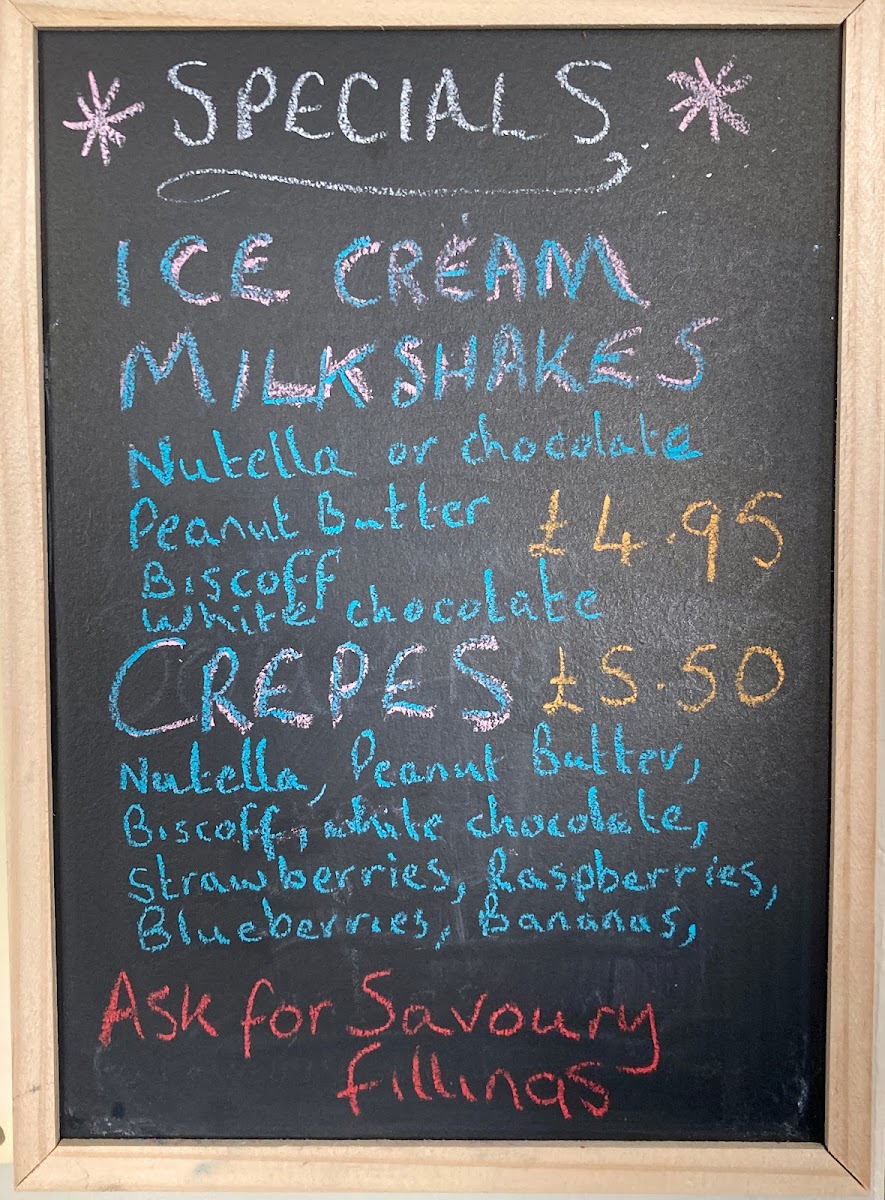 SPECIALS
ICE CREAM
MILKSHAKES
Nutella or chocolate
Peanut Butter £4.95
Biscoff
White chocolate
CREPES £5.50
Nutella, Peanut Butter,
Biscoff, white chocolate,
Strawberries, Raspberries,
Blueberries, Bananas,
Ask for Savoury
fillings